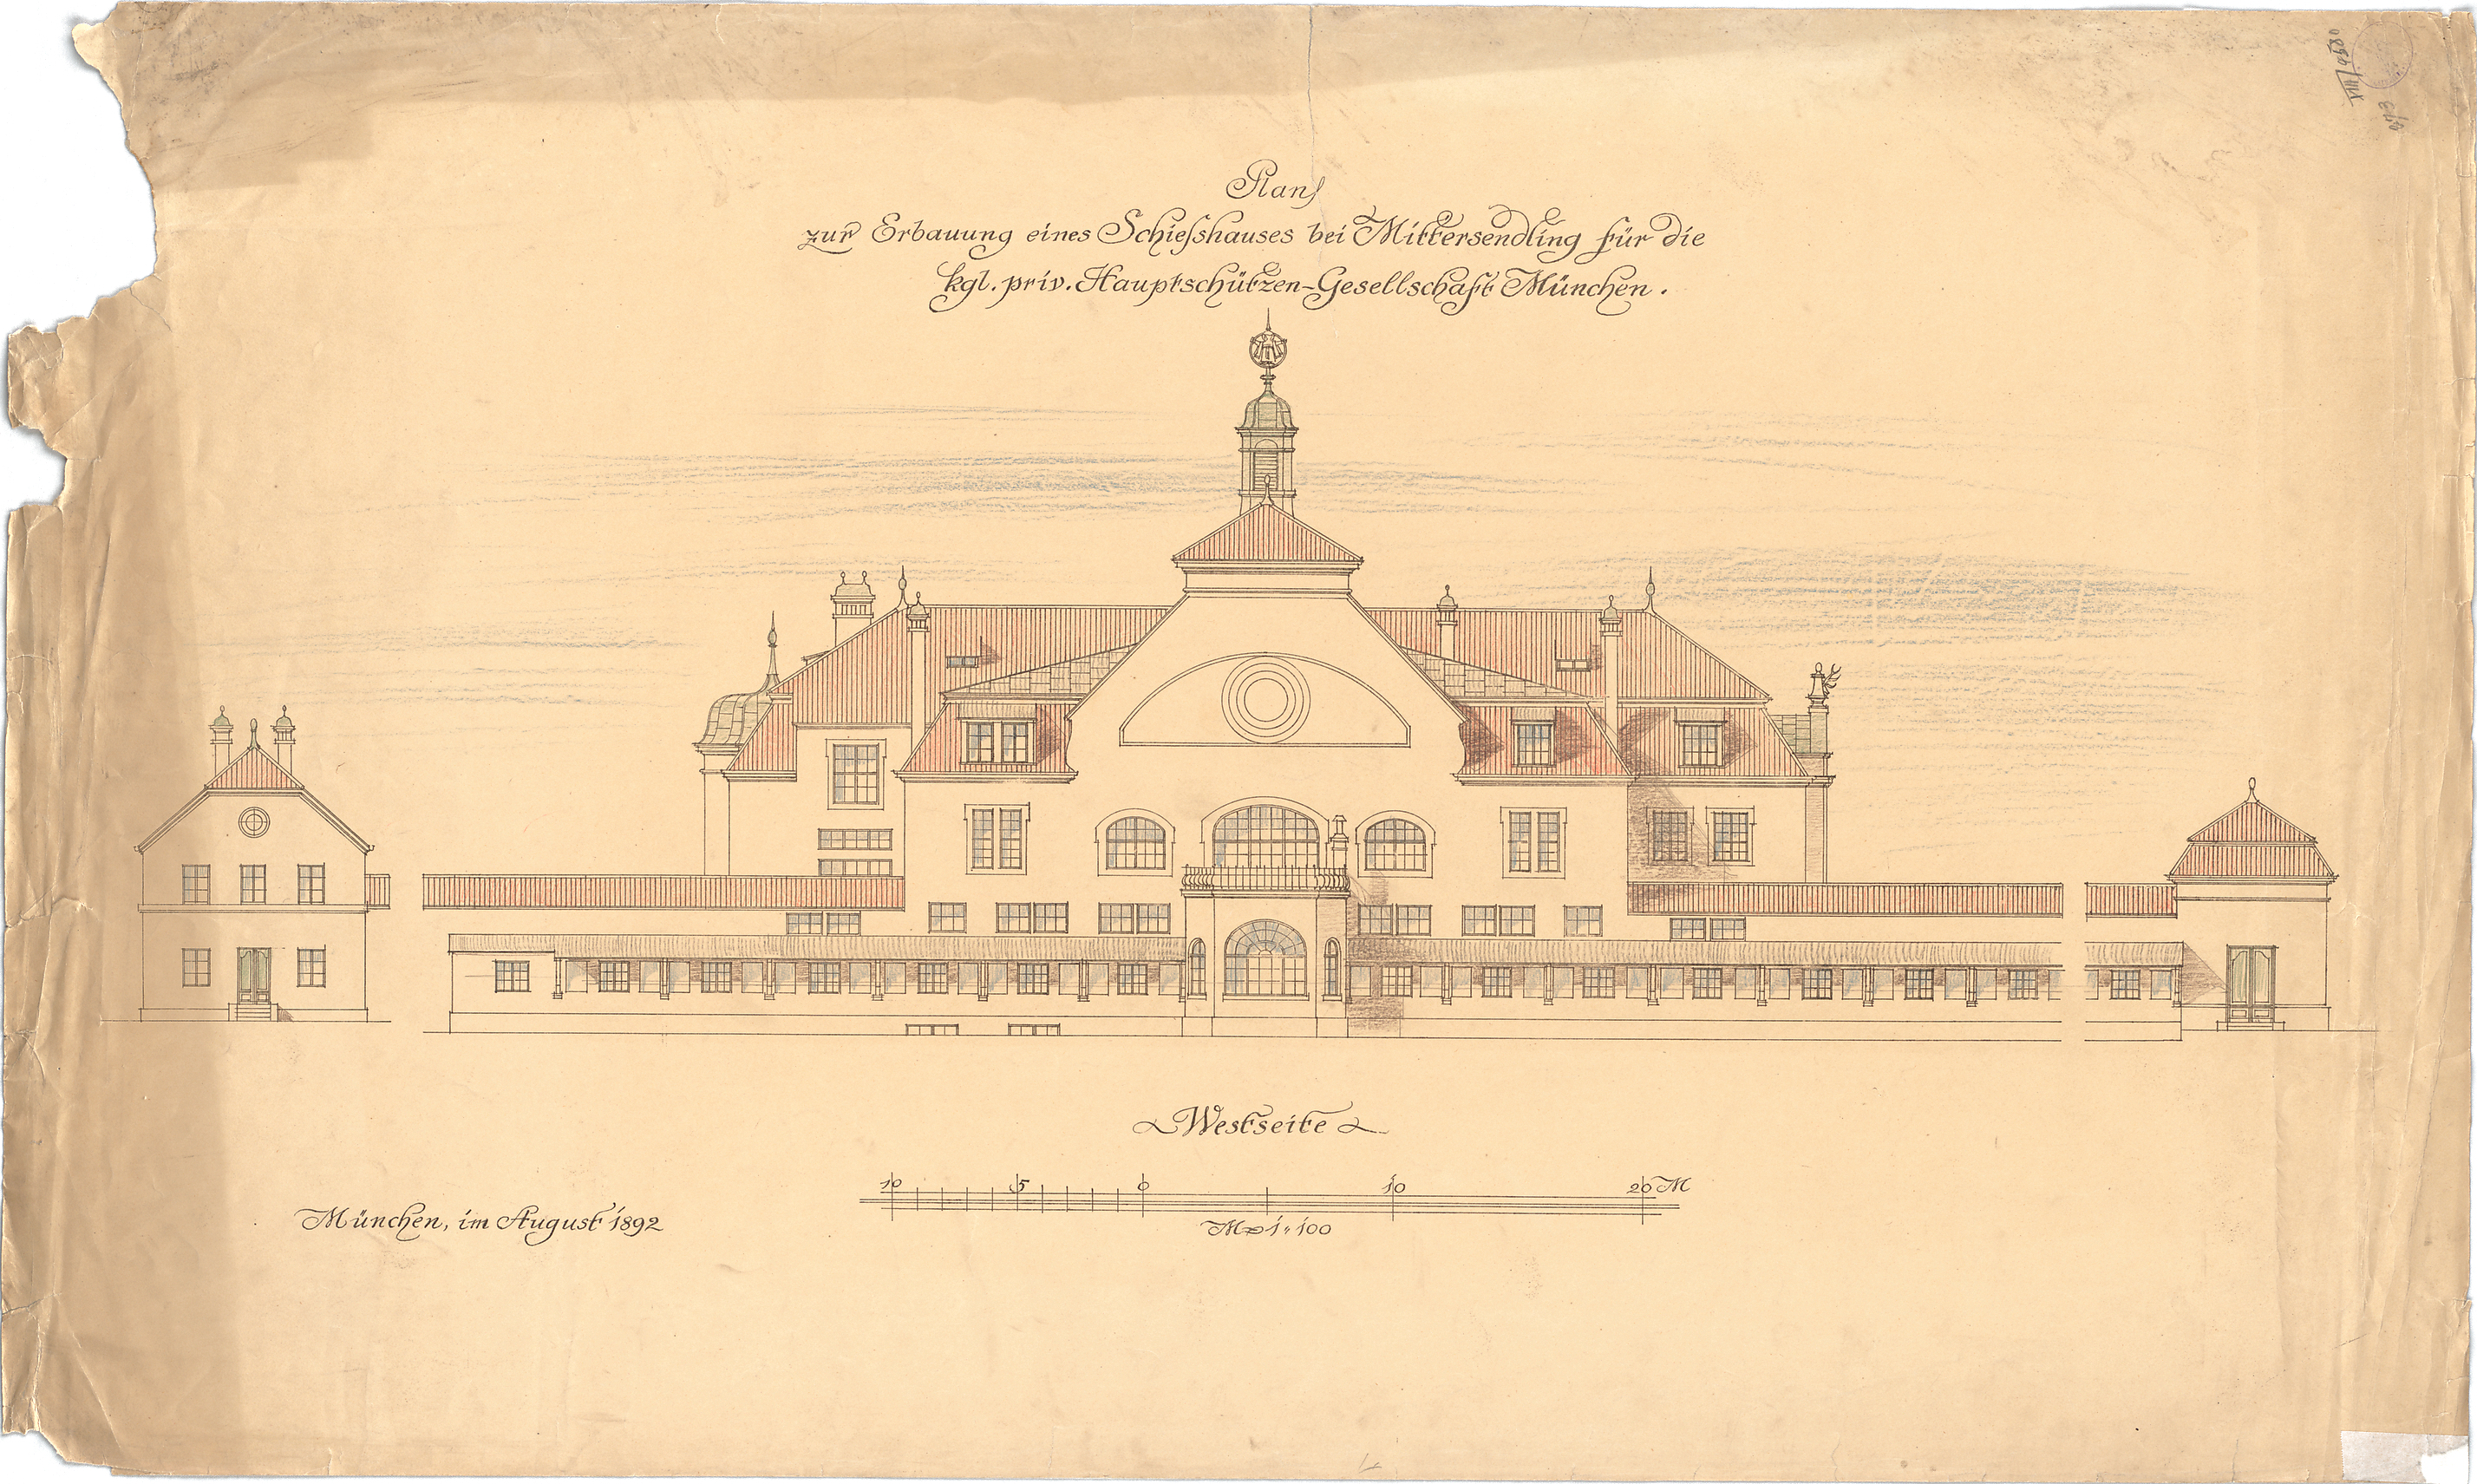 Plan
zur Erbauung eines Schiesshauses bei Mittersendling für die
kgl. priv. Hauptschützen-Gesellschaft München.
Westseite
10 5 0 10 20 M
M = 1:100
München, im August 1892